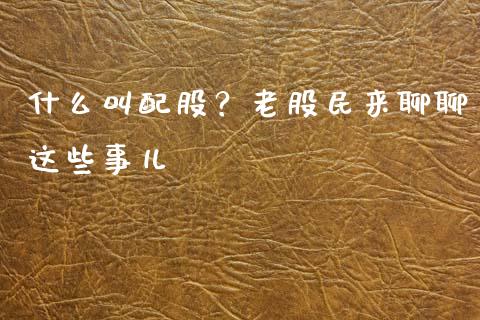 什么叫配股？老股民来聊聊
这些事儿